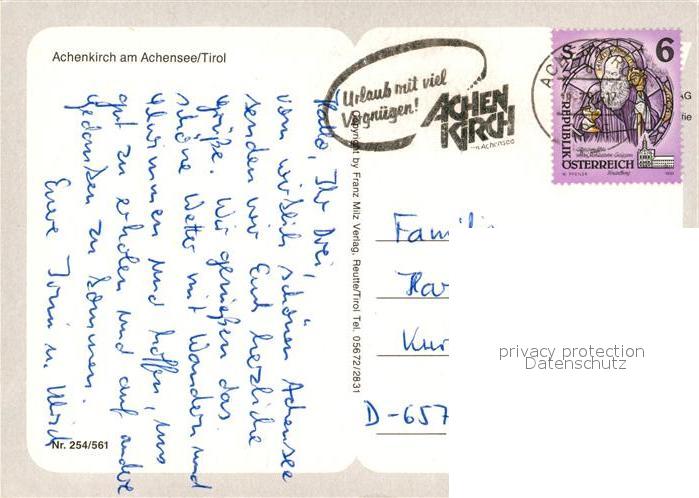 Achenkirch am Achensee/Tirol
Hallo, Ihr Drei,
vom wirklich schönen Achensee
senden wir Euch herzliche
Grüße. Wir genießen das
schöne Wetter mit Wandern und
Schwimmen und hoffen, uns
gut zu erholen und auf andere
Gedanken zu kommen.
Eure Toni u. Ulrich
Nr. 254/561
Copyright by Franz Milz Verlag, Reutte/Tirol Tel. 05672/2831
Urlaub mit viel
Vergnügen!
ACHEN
KIRCH
am Achensee
S 6
REPUBLIK
ÖSTERREICH
Familie
Kur
D-657
AG
privacy protection
Datenschutz